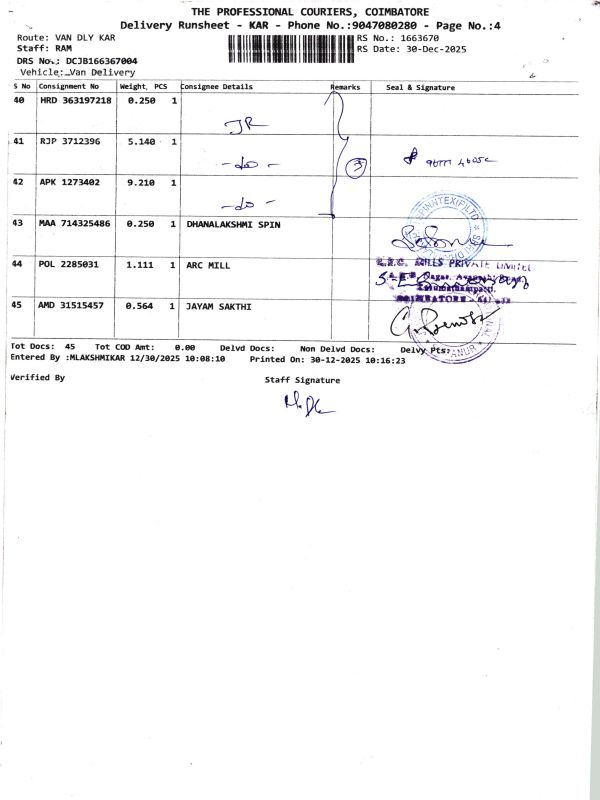 THE PROFESSIONAL COURIERS, COIMBATORE
Delivery Runsheet - KAR - Phone No.:9047080280 - Page No.:4
Route: VAN DLY KAR RS No.: 1663670
Staff: RAM RS Date: 30-Dec-2025
DRS No.: DCJB166367004
Vehicle: Van Delivery
S No Consignment No Weight, PCS Consignee Details Remarks Seal & Signature
40 HRD 363197218 0.250 1
JR
41 RJP 3712396 5.140 1
-do-
42 APK 1273402 9.210 1
-do-
43 MAA 714325486 0.250 1 DHANALAKSHMI SPIN
44 POL 2285031 1.111 1 ARC MILL
MILLS PRIVATE LIMITED
45 AMD 31515457 0.564 1 JAYAM SAKTHI
COIMBATORE
Tot Docs: 45 Tot COD Amt: 0.00 Delvd Docs: Non Delvd Docs: Delvy Pts:
Entered By :MLAKSHMIKAR 12/30/2025 10:08:10 Printed On: 30-12-2025 10:16:23
Verified By Staff Signature